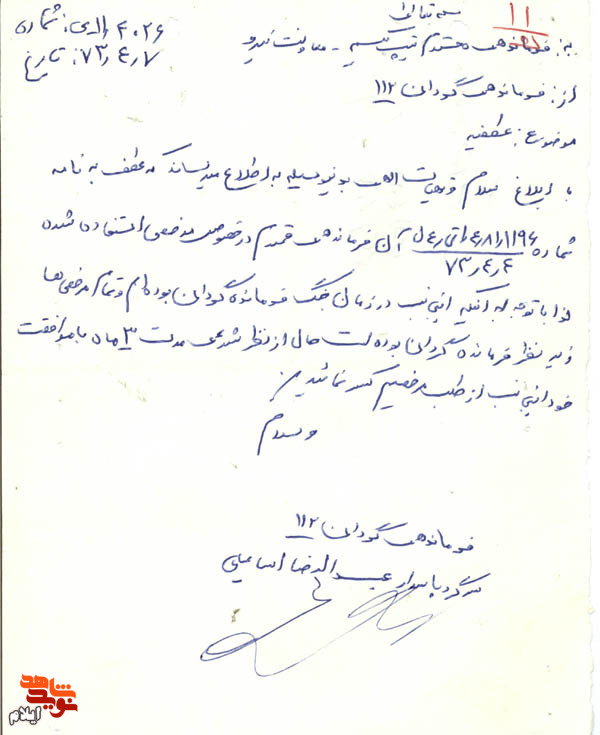 بسمه تعالی
۱۱
شماره: ۴۰۲۶
تاریخ: ۷۳٫۴٫۷
به: فرماندهی محترم تیپ یکم - معاونت نیرو
از: فرماندهی گردان ۱۱۲
موضوع: عطفیه
با ابلاغ سلام و تحیات الهی بدینوسیله به اطلاع میرساند که عطف به نامه
شماره ۱۱۹۶ آن فرماندهی محترم در خصوص مرخصی استفاده شده
۷۳٫۴٫۴
لذا با توجه به اینکه اینجانب در زمان جنگ فرمانده گردان بوده ام و تمام مرخصی ها
زیر نظر فرمانده گردان بوده است حال از نظر شرعی مدت ۳ ماه با موافقت
خود اینجانب از طلب مرخصیم کسر نمائید
والسلام
فرماندهی گردان ۱۱۲
سرگرد پاسدار عبدالرضا اسماعیلی
شاهد
نوید
ایلام